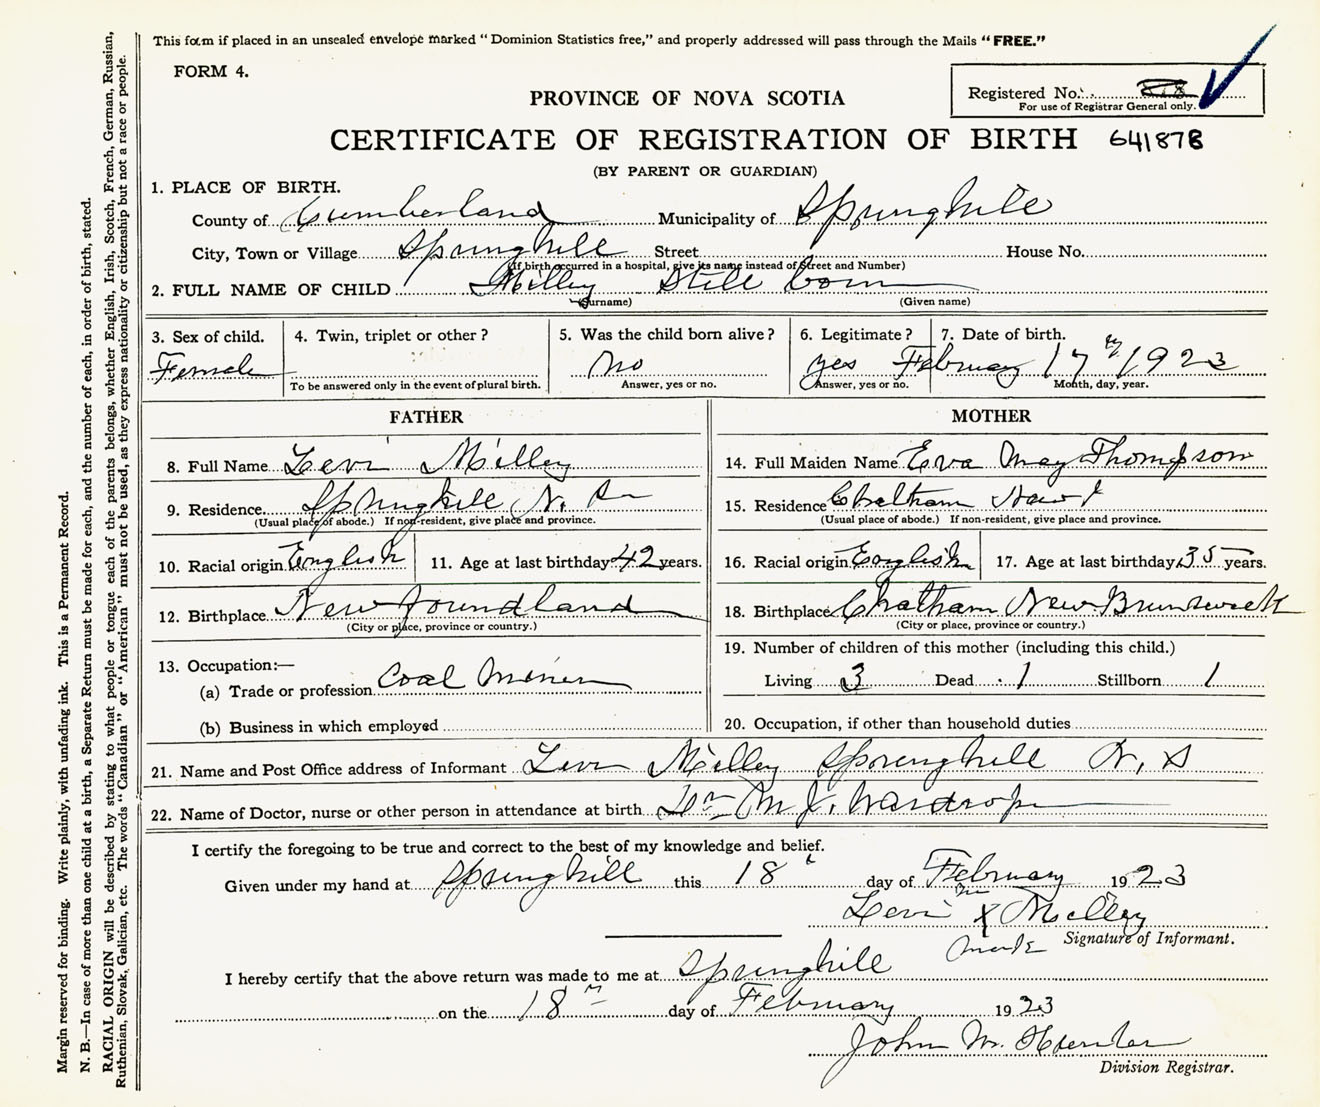 This form if placed in an unsealed envelope marked "Dominion Statistics free," and properly addressed will pass through the Mails "FREE."
FORM 4.
Registered No.
For use of Registrar General only.
PROVINCE OF NOVA SCOTIA
CERTIFICATE OF REGISTRATION OF BIRTH 641878
(BY PARENT OR GUARDIAN)
1. PLACE OF BIRTH.
County of Cumberland Municipality of Springhill
City, Town or Village Springhill Street House No.
(If birth occurred in a hospital, give its name instead of Street and Number)
2. FULL NAME OF CHILD Milley Still born
(Surname) (Given name)
3. Sex of child. 4. Twin, triplet or other? 5. Was the child born alive? 6. Legitimate? 7. Date of birth.
Female no yes February 17th 1923
To be answered only in the event of plural birth. Answer, yes or no. Answer, yes or no. Month, day, year.
FATHER MOTHER
8. Full Name Levi Milley 14. Full Maiden Name Eva May Thompson
9. Residence Springhill N. S. 15. Residence Chatham New
(Usual place of abode.) If non-resident, give place and province. (Usual place of abode.) If non-resident, give place and province.
10. Racial origin English 11. Age at last birthday 42 years. 16. Racial origin English 17. Age at last birthday 35 years.
12. Birthplace Newfoundland 18. Birthplace Chatham New Brunswick
(City or place, province or country.) (City or place, province or country.)
13. Occupation:— 19. Number of children of this mother (including this child.)
(a) Trade or profession Coal Miner Living 3 Dead 1 Stillborn 1
(b) Business in which employed 20. Occupation, if other than household duties
21. Name and Post Office address of Informant Levi Milley Springhill N. S
22. Name of Doctor, nurse or other person in attendance at birth Dr M J. Wardrope
I certify the foregoing to be true and correct to the best of my knowledge and belief.
Given under my hand at Springhill this 18t day of February 1923
Levi X Milley
mark Signature of Informant.
I hereby certify that the above return was made to me at Springhill
on the 18th day of February 1923
John M. Hunter
Division Registrar.
Margin reserved for binding. Write plainly, with unfading ink. This is a Permanent Record.
N. B.—In case of more than one child at a birth, a Separate Return must be made for each, and the number of each, in order of birth, stated.
RACIAL ORIGIN will be described by stating to what people or tongue each of the parents belongs, whether English, Irish, Scotch, French, German, Russian,
Ruthenian, Slovak, Galician, etc. The words "Canadian" or "American" must not be used, as they express nationality or citizenship but not a race or people.